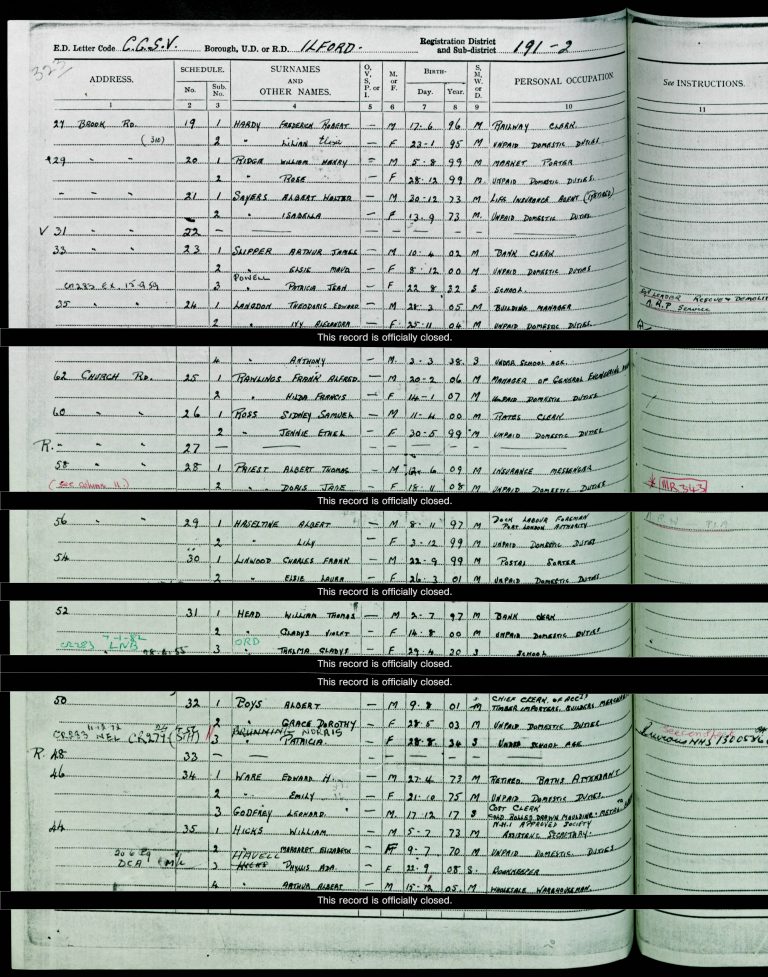 E.D. Letter Code C.G.S.V. Borough, U.D. or R.D. ILFORD. Registration District and Sub-district 191-2
323
ADDRESS. SCHEDULE. No. Sub. No. SURNAMES AND OTHER NAMES. O, V, S, P, or I. M. or F. BIRTH- Day. Year. S, M, W, or D. PERSONAL OCCUPATION. See INSTRUCTIONS.
1 2 3 4 5 6 7 8 9 10 11
27 BROOK RD. 19 1 HARDY FREDERICK ROBERT - M 17-6 96 M RAILWAY CLERK
(310) 2 " LILIAN - F 23-1 95 M UNPAID DOMESTIC DUTIES
29 " " 20 1 RIDGE WILLIAM HENRY = M 5-8 99 M MARKET PORTER
2 " ROSE - F 28-12 99 M. UNPAID DOMESTIC DUTIES.
- " " 21 1 SAYERS ALBERT WALTER - M 20-12 73 M LIFE INSURANCE AGENT (RETIRED)
2 " ISABELLA - F 13.9 73 M. UNPAID DOMESTIC DUTIES
V 31 " " 22 - — - - - - -
33 " " 23 1 SLIPPER ARTHUR JAMES - M 10-4 02 M BANK CLERK
2 " ELSIE MAUD - F 8-12 00 M UNPAID DOMESTIC DUTIES
POWELL
CR283 EX. 15.9.59 3 " PATRICIA JEAN - F 22 8 32 S SCHOOL.
35 " " 24 1 LANGDON THEODORIC EDWARD - M 28-3 05 M BUILDING MANAGER LEADER RESCUE & DEMOLIT
A.R.P SERVICE
2 " IVY ALEXANDRA - F. 25-11 04 M UNPAID DOMESTIC DUTIES.
This record is officially closed.
4 " ANTHONY - M. 3-3 38. S UNDER SCHOOL AGE.
62 CHURCH RD. 25 1 RAWLINGS FRANK ALFRED. - M 20-2 06 M MANAGER OF GENERAL ENGINEERING
2 " HILDA FRANCIS - F 14-1 07 M UNPAID DOMESTIC DUTIES
60 " " 26 1 ROSS SIDNEY SAMUEL - M 11-4 00 M RATES CLERK
2 " JENNIE ETHEL - F 30-5 99 M UNPAID DOMESTIC DUTIES
R. - " " 27 - — - - - - -
58 " " 28 1 PRIEST ALBERT THOMAS - M 6 09 M INSURANCE MESSENGER
(See column 11.) 2 " DORIS JADE - F 18-11 08 M UNPAID DOMESTIC DUTIES * MR343
This record is officially closed.
56 " " 29 1 HASELTINE ALBERT - M 8-11 97 M DOCK LABOUR FOREMAN
PORT LONDON AUTHORITY
2 " LILY - F 3-12 99 M UNPAID DOMESTIC DUTIES
54 " " 30 1 LINWOOD CHARLES FRANK - M 22-9 99 M POSTAL SORTER
2 " ELSIE LAURA - F 26-3 01 M UNPAID DOMESTIC DUTIES
This record is officially closed.
52 31 1 HEAD WILLIAM THOMAS - M 2-7 97 M BANK CLERK
7-1-82 2 " GLADYS VIOLET - F 14-8 00 M UNPAID DOMESTIC DUTIES
ORD
CR283 LNB 3 " THELMA GLADYS - F 29.4 30 S SCHOOL
This record is officially closed.
This record is officially closed.
50 32 1 BOYS ALBERT - M 9-8 01 M CHIEF CLERK OF ACCTS
TIMBER IMPORTERS, BUILDERS MERCHANTS
2 " GRACE DOROTHY - F 28.5 03 M UNPAID DOMESTIC DUTIES
BRUNNING NORRIS
CR283 NEL CR274 3 " PATRICIA - F 28-8. 34 S UNDER SCHOOL AGE
R. 48 33 - — - - - - -
46 34 1 WARE EDWARD H. - M 27-4 73 M RETIRED BATHS ATTENDANT
2 " EMILY - F 21-10 75 M UNPAID DOMESTIC DUTIES.
3 GODFREY LEONARD. M. 17-12 17 S COST CLERK
COLD ROLLED DRAWN MOULDING-METAL
44 35 1 HICKS WILLIAM - M 5-7 73 M N.H.I APPROVED SOCIETY
ASSISTANT SECRETARY.
2 " MARGARET ELIZABETH - F 9-7 70 M UNPAID DOMESTIC DUTIES
HAVELL
DCA 3 HICKS PHYLLIS ADA - F 22-9 08 S. BOOKKEEPER
4 " ARTHUR ALBERT - M 15-12 05. M WHOLESALE WAREHOUSEMAN.
This record is officially closed.